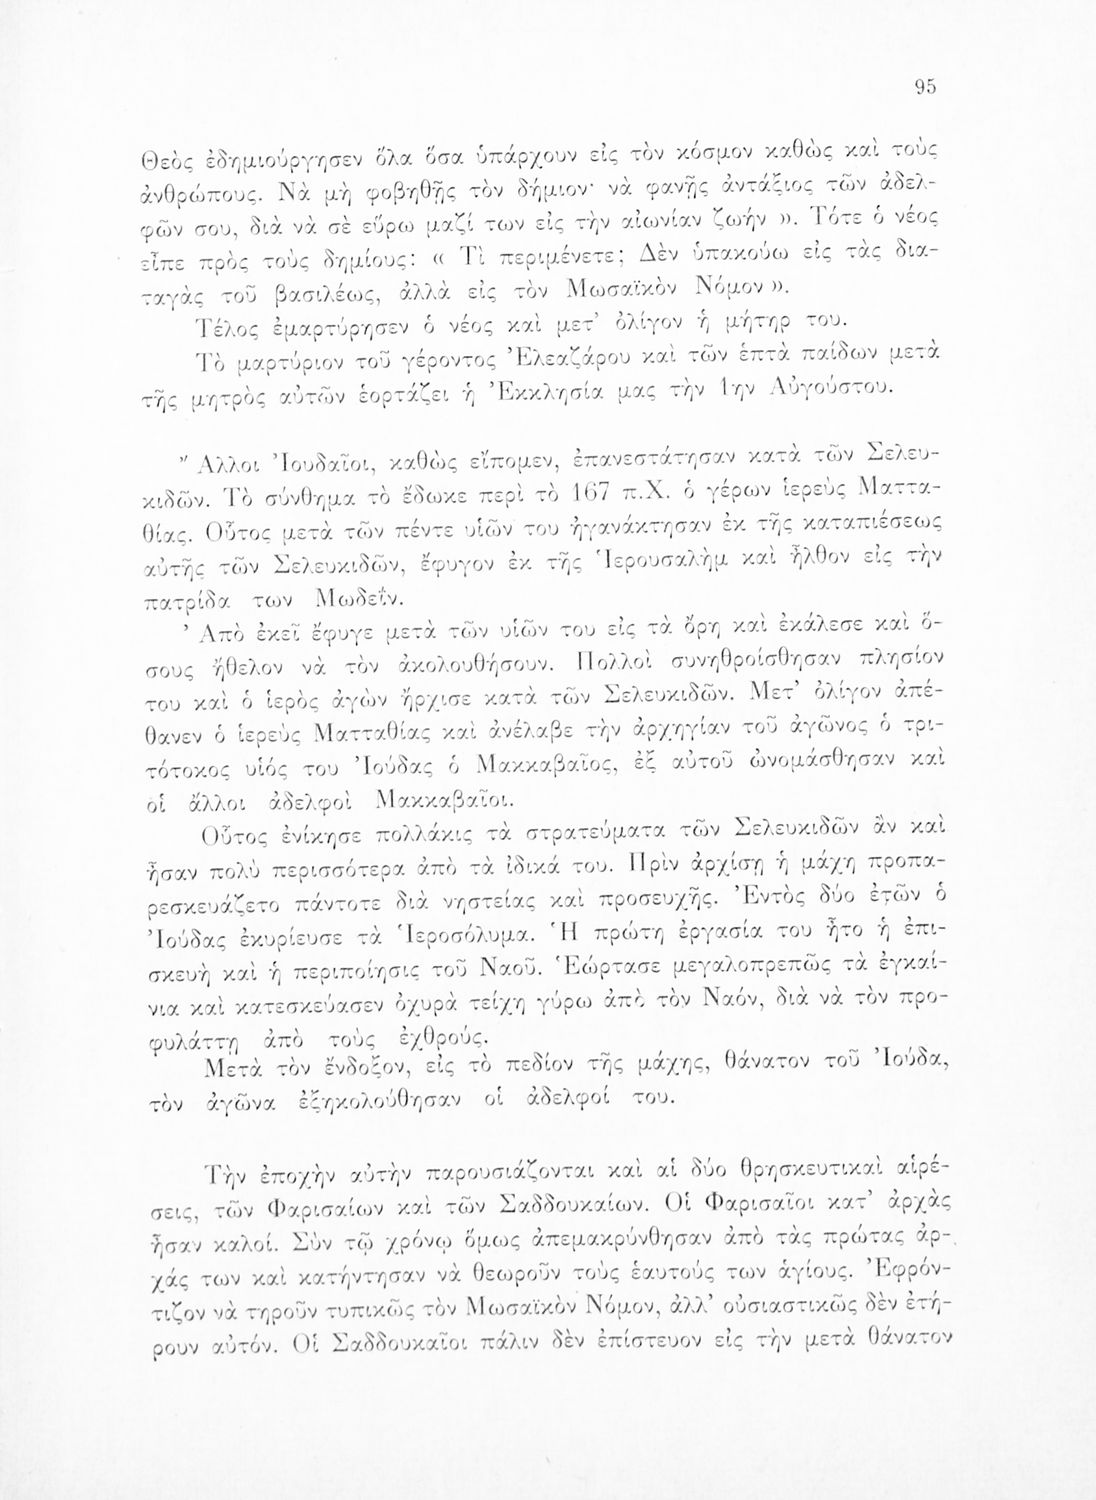 95
Θεὸς ἐδημιούργησεν ὅλα ὅσα ὑπάρχουν εἰς τὸν κόσμον καθὼς καὶ τοὺς
ἀνθρώπους. Νὰ μὴ φοβηθῇς τὸν δήμιον· νὰ φανῇς ἀντάξιος τῶν ἀδελ-
φῶν σου, διὰ νὰ σὲ εὕρω μαζί των εἰς τὴν αἰωνίαν ζωήν ». Τότε ὁ νέος
εἶπε πρὸς τοὺς δημίους: « Τὶ περιμένετε; Δὲν ὑπακούω εἰς τὰς δια-
ταγὰς τοῦ βασιλέως, ἀλλὰ εἰς τὸν Μωσαϊκὸν Νόμον ».
Τέλος ἐμαρτύρησεν ὁ νέος καὶ μετ’ ὀλίγον ἡ μήτηρ του.
Τὸ μαρτύριον τοῦ γέροντος Ἐλεαζάρου καὶ τῶν ἑπτὰ παίδων μετὰ
τῆς μητρὸς αὐτῶν ἑορτάζει ἡ Ἐκκλησία μας τὴν 1ην Αὐγούστου.
Ἄλλοι Ἰουδαῖοι, καθὼς εἴπομεν, ἐπανεστάτησαν κατὰ τῶν Σελευ-
κιδῶν. Τὸ σύνθημα τὸ ἔδωκε περὶ τὸ 167 π.Χ. ὁ γέρων ἱερεὺς Ματτα-
θίας. Οὗτος μετὰ τῶν πέντε υἱῶν του ἠγανάκτησαν ἐκ τῆς καταπιέσεως
αὐτῆς τῶν Σελευκιδῶν, ἔφυγον ἐκ τῆς Ἱερουσαλὴμ καὶ ἦλθον εἰς τὴν
πατρίδα των Μωδεΐν.
Ἀπὸ ἐκεῖ ἔφυγε μετὰ τῶν υἱῶν του εἰς τὰ ὄρη καὶ ἐκάλεσε καὶ ὅ-
σους ἤθελον νὰ τὸν ἀκολουθήσουν. Πολλοὶ συνηθροίσθησαν πλησίον
του καὶ ὁ ἱερὸς ἀγὼν ἤρχισε κατὰ τῶν Σελευκιδῶν. Μετ’ ὀλίγον ἀπέ-
θανεν ὁ ἱερεὺς Ματταθίας καὶ ἀνέλαβε τὴν ἀρχηγίαν τοῦ ἀγῶνος ὁ τρι-
τότοκος υἱός του Ἰούδας ὁ Μακκαβαῖος, ἐξ αὐτοῦ ὠνομάσθησαν καὶ
οἱ ἄλλοι ἀδελφοὶ Μακκαβαῖοι.
Οὗτος ἐνίκησε πολλάκις τὰ στρατεύματα τῶν Σελευκιδῶν ἂν καὶ
ἦσαν πολὺ περισσότερα ἀπὸ τὰ ἰδικά του. Πρὶν ἀρχίσῃ ἡ μάχη προπα-
ρεσκευάζετο πάντοτε διὰ νηστείας καὶ προσευχῆς. Ἐντὸς δύο ἐτῶν ὁ
Ἰούδας ἐκυρίευσε τὰ Ἱεροσόλυμα. Ἡ πρώτη ἐργασία του ἦτο ἡ ἐπι-
σκευὴ καὶ ἡ περιποίησις τοῦ Ναοῦ. Ἑώρτασε μεγαλοπρεπῶς τὰ ἐγκαί-
νια καὶ κατεσκεύασεν ὀχυρὰ τείχη γύρω ἀπὸ τὸν Ναόν, διὰ νὰ τὸν προ-
φυλάττῃ ἀπὸ τοὺς ἐχθρούς.
Μετὰ τὸν ἔνδοξον, εἰς τὸ πεδίον τῆς μάχης, θάνατον τοῦ Ἰούδα,
τὸν ἀγῶνα ἐξηκολούθησαν οἱ ἀδελφοί του.
Τὴν ἐποχὴν αὐτὴν παρουσιάζονται καὶ αἱ δύο θρησκευτικαὶ αἱρέ-
σεις, τῶν Φαρισαίων καὶ τῶν Σαδδουκαίων. Οἱ Φαρισαῖοι κατ’ ἀρχὰς
ἦσαν καλοί. Σὺν τῷ χρόνῳ ὅμως ἀπεμακρύνθησαν ἀπὸ τὰς πρώτας ἀρ-
χάς των καὶ κατήντησαν νὰ θεωροῦν τοὺς ἑαυτούς των ἁγίους. Ἐφρόν-
τιζον νὰ τηροῦν τυπικῶς τὸν Μωσαϊκὸν Νόμον, ἀλλ’ οὐσιαστικῶς δὲν ἐτή-
ρουν αὐτόν. Οἱ Σαδδουκαῖοι πάλιν δὲν ἐπίστευον εἰς τὴν μετὰ θάνατον